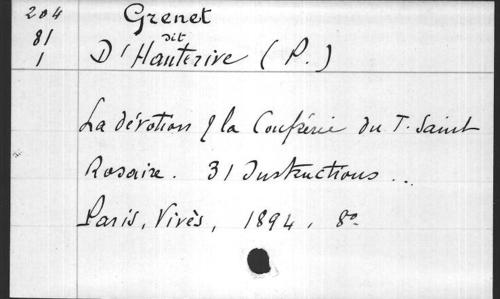 204 Grenet
81 dit
1 D'Hauterive (P.)
La dévotion & la Confrérie du T. Saint
Rosaire. 31 Instructions...
Paris, Vivès, 1894, 8º